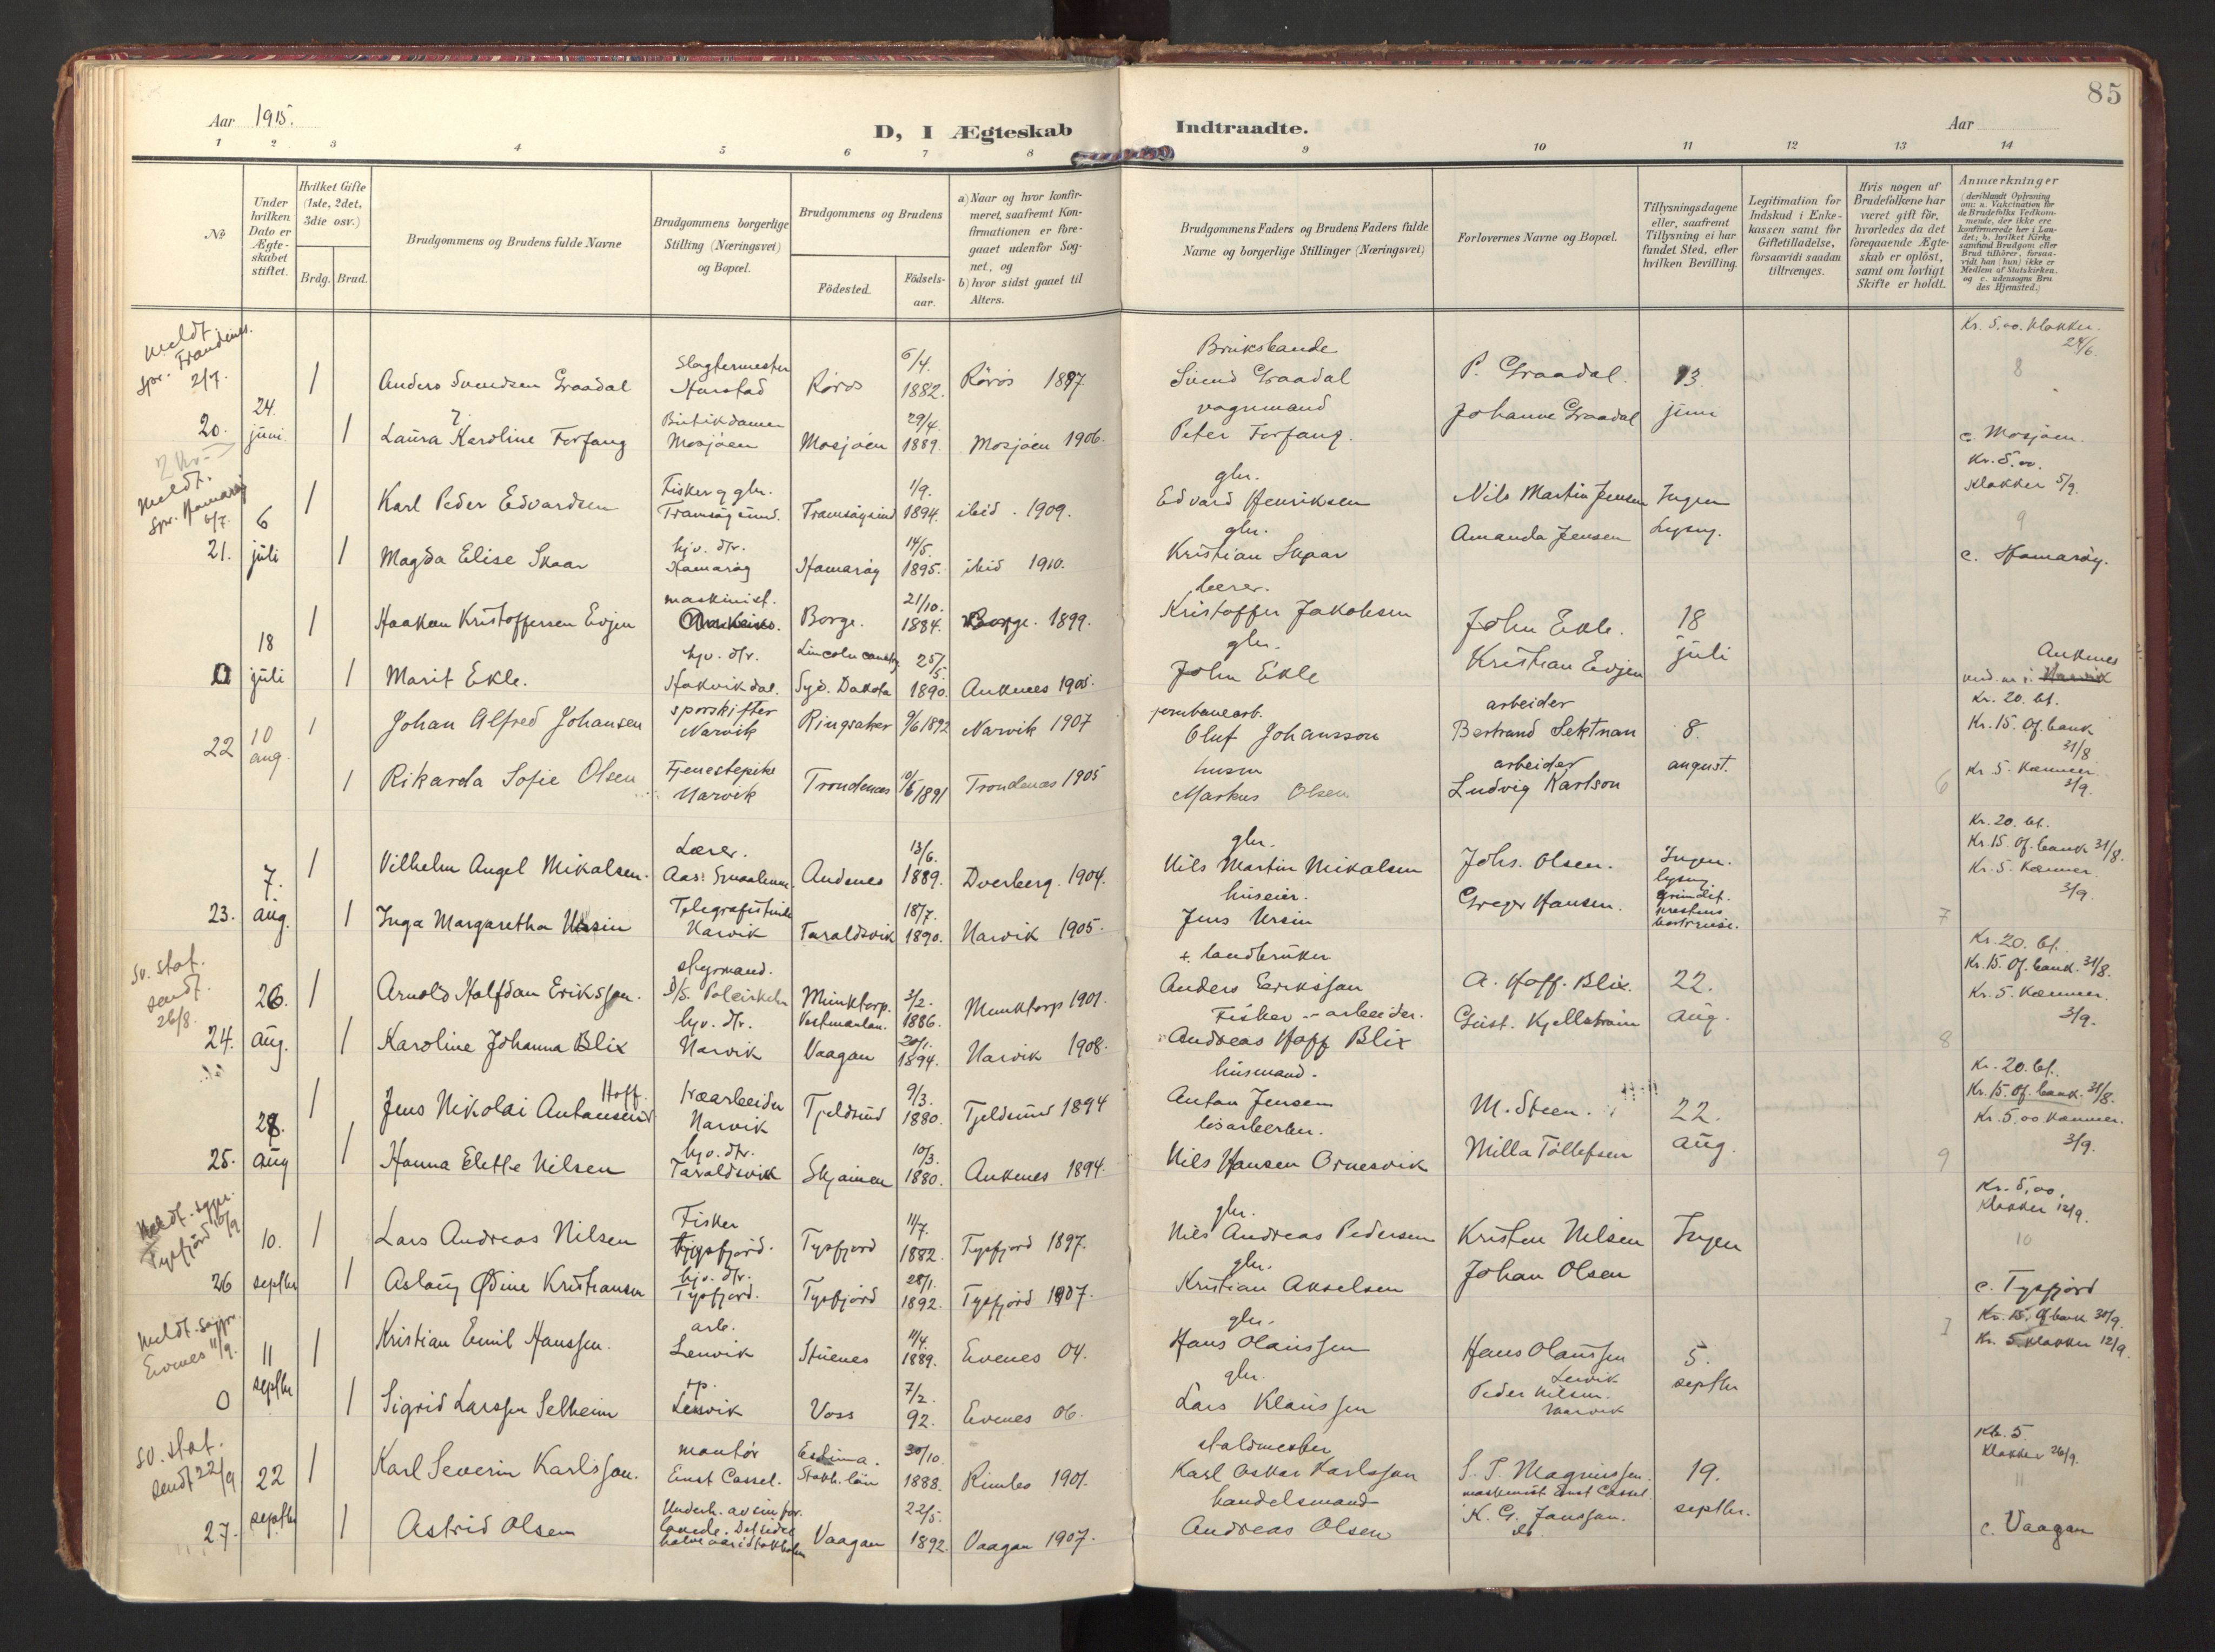 85
Aar 1915.
D, I Ægteskab Indtraadte.
Aar
1 2 3 4 5 6 7 8 9 10 11 12 13 14
No
Under hvilken Dato er Ægte-skabet stiftet.
Hvilket Gifte (1ste, 2det, 3die osv.)
Brdg. Brud.
Brudgommens og Brudens fulde Navne
Brudgommens borgerlige Stilling (Næringsvei) og Bopæl.
Brudgommens og Brudens
Födested.
Födsels-aar.
a) Naar og hvor konfir-meret, saafremt Kon-firmationen er fore-gaaet udenfor Sog-net, og
b) hvor sidst gaaet til Alters.
Brudgommens Faders og Brudens Faders fulde Navne og borgerlige Stillinger (Næringsvei)
Forlovernes Navne og Bopæl.
Tillysningsdagene eller, saafremt Tillysning ei har fundet Sted, efter hvilken Bevilling.
Legitimation for Indskud i Enke-kassen samt for Giftetilladelse, forsaavidt saadan tiltrænges.
Hvis nogen af Brudefolkene har været gift för, hvorledes da det foregaaende Ægte-skab er oplöst, samt om lovligt Skifte er holdt.
Anmærkninger
(deriblandt Oplysning om: a. Vakcination for de Brudefolks Vedkom-mende, der ikke ere konfirmerede her i Lan-det; b. hvilket Kirke-samfund Brudgom eller Brud tilhörer, forsaa-vidt han (hun) ikke er Medlem af Statskirken. og c. udensogns Bru-des Hjemsted.)
meldt spr. Trondenes. 2/7.
Kr. 5.00. klokker. 24/6.
1 Anders Svendsen Graadal Slagtermester Harstad Röros 6/4. 1882. Röros 1897
Bruksbande Svend Graadal P. Graadal. 13. 8
20. 24. juni 1 Laura Karoline Forfang Butikdame Mosjöen Mosjöen 29/4. 1889. Mosjöen 1906.
vognmand Peter Forfang. Johanne Graadal juni c. Mosjöen.
2 Kr.
meldt. spr. Hamaröy 6/7.
1 Karl Peder Edvardsen Fisker og gbr. Tranöy sund. 1/9. 1894. ibid. 1909.
gbr. Edvard Henriksen Nils Martin Jensen Ingen Kr. 5.00. Klokker 5/9. 9
21. 6 juli 1 Magda Elise Skaar hjv. dtr. Hamaröy Hamaröy 14/5. 1895. ibid 1910.
gbr. Kristian Skaar Amanda Jensen Lysng. c. Hamaröy.
1 Haakon Kristoffersen Evjen maskinist. Borge. 21/10. 1884. Borge. 1899.
lærer. Kristoffer Jakobsen John Ekle. 18
0 18 juli 1 Marit Ekle. hjv. dtr. Hakvikdal. Lincoln county Syd. Dakota 25/5. 1890. Ankenes 1905.
gbr. John Ekle Kristian Evjen juli Ankenes
22 10 aug. 1 Johan Alfred Johansen sporskifter Narvik Ringsaker 9/6 1892 Narvik 1907
jernbanearb. Oluf Johansson arbeider Bertrand Sektnan 8. Kr. 20. bt. Kr. 15. Of. bank 31/8
1 Rikarda Sofie Olsen Tjenestepike Narvik Trondenæs 10/6 1891 Trondenæs 1905
husm Markus Olsen arbeider Ludvig Karlson august. 6 Kr. 5. Kæmner. 3/9.
1 Vilhelm Angel Mikalsen. Lærer. Andenes 13/6. 1889. Dverberg. 1904.
gbr. Nils Martin Mikalsen Johs. Olsen. Ingen. lysng Kr. 20. bt. Kr. 15. Of. bank 31/8. Kr. 5. Kæmner. 3/9.
23. 7. aug. 1 Inga Margaretha Ursin Telegrafistinde Narvik Taraldsvik 18/7. 1890. Narvik 1905.
huseier. Jens Ursin Greger Hansen. grundet. 7
sv. stat. sendt. 26/8.
26. 1 Arnold Halfdan Eriksson. styrmand. D/S. Munktorp. Vestmanlan. 3/2. 1886. Munktorp 1901.
+ landbruker Anders Eriksson A. Hoff. Blix. 22. Kr. 20. bt. Kr. 15. Of. bank. 31/8. Kr. 5. Kæmner. 3/9.
24. aug. 1 Karoline Johanna Blix hjv. dtr. Narvik Vaagan 20/1. 1894. Narvik 1908.
Fisker - arbeider. Andreas Hoff Blix Gust. Kjellström aug. 8
1 Jens Nikolai Antonsen Hoff. Narvik Tjeldsund 9/3. 1880. Tjeldsund 1894
husmand. Anton Jensen M. Steen. 22. Kr. 20. bt. Kr. 15. Of. bank. 31/8. Kr. 5,00 Kæmner. 3/9.
25. 28. aug 1 Hanna Elette Nilsen hjv. dtr. Taraldsvik Skjomen 10/3. 1880. Ankenes 1894.
Nils Hansen Ornesvik Milla Tollefsen aug. 9
Meldt. sgpr. Tysfjörd 10/9
10. 1 Lars Andreas Nilsen Fisker Tysfjord. Tysfjord 11/7. 1882. Tysfjord 1897.
gbr. Nils Andreas Pedersen Kristen Nilsen Ingen Kr. 5,00, Klokker 12/9. 10
26 septbr 1 Aslaug Ødine Kristiansen hjv. dtr. Tysfjord. Tysfjord 28/1. 1892. Tysfjord 1907.
gbr. Kristian Akselsen Johan Olsen c. Tysfjord
Meldt. sgpr. Evenes 11/9.
11 1 Kristian Emil Hanssen. arb. Lenvik Stuenes 11/4. 1889. Evenes 04.
gbr. Hans Olaussen Hans Olaussen Lenvik 5. 1 Kr. 15. Of bank 30/9. Kr. 5 klokker 12/9.
0 septbr 1 Sigrid Larssen Selheim tp. Lenvik Voss 7/2. 92. Evenes 06.
gbr. Lars Klaussen Peder Nilsen. Narvik septbr
sv. stat. sendt 22/9
22 1 Karl Severin Karlsson. montör Ernst Cassel. Estuna. Stokh. län 30/10. 1888. Rimbo 1901.
staldmester Karl Oskar Karlsson S. P. Magnussen. maskinist Ernst Cassel 19. Kr. 5 Klokker 26/9. 11
27. septbr 1 Astrid Olsen Underh. av sin for. Vaagan 22/5. 1892. Vaagan 1907.
handelsmand Andreas Olsen K. G. Jansson. septbr. c. Vaagan